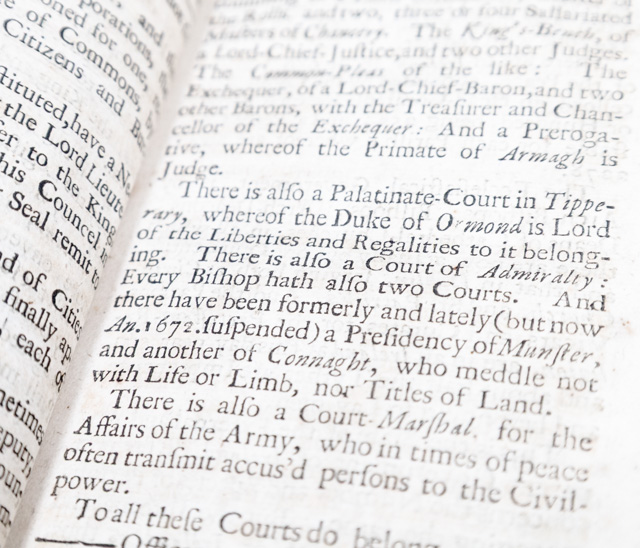 porations, and
oned for one,
e of Commons, by
Citizens and
stituted, have a
the Lord Lieute
er to the King
his Councel
Seal remit
nd of Cities
finally
each of
metimes
eputy
oun-
the Rolls, and two, three or four Sallariated
Masters of Chancery. The King's-Bench, of
a Lord-Chief-Juſtice, and two other Judges.
The Common-Pleas of the like: The
Exchequer, of a Lord-Chief-Baron, and two
other Barons, with the Treaſurer and Chan-
cellor of the Exchequer: And a Preroga-
tive, whereof the Primate of Armagh is
Judge.
There is alſo a Palatinate-Court in Tippe-
rary, whereof the Duke of Ormond is Lord
of the Liberties and Regalities to it belong-
ing. There is alſo a Court of Admiralty:
Every Biſhop hath alſo two Courts. And
there have been formerly and lately (but now
An. 1672. ſuſpended) a Preſidency of Munſter,
and another of Connaght, who meddle not
with Life or Limb, nor Titles of Land.
There is alſo a Court-Marſhal. for the
Affairs of the Army, who in times of peace
often tranſmit accus'd perſons to the Civil-
power.
To all theſe Courts do belong